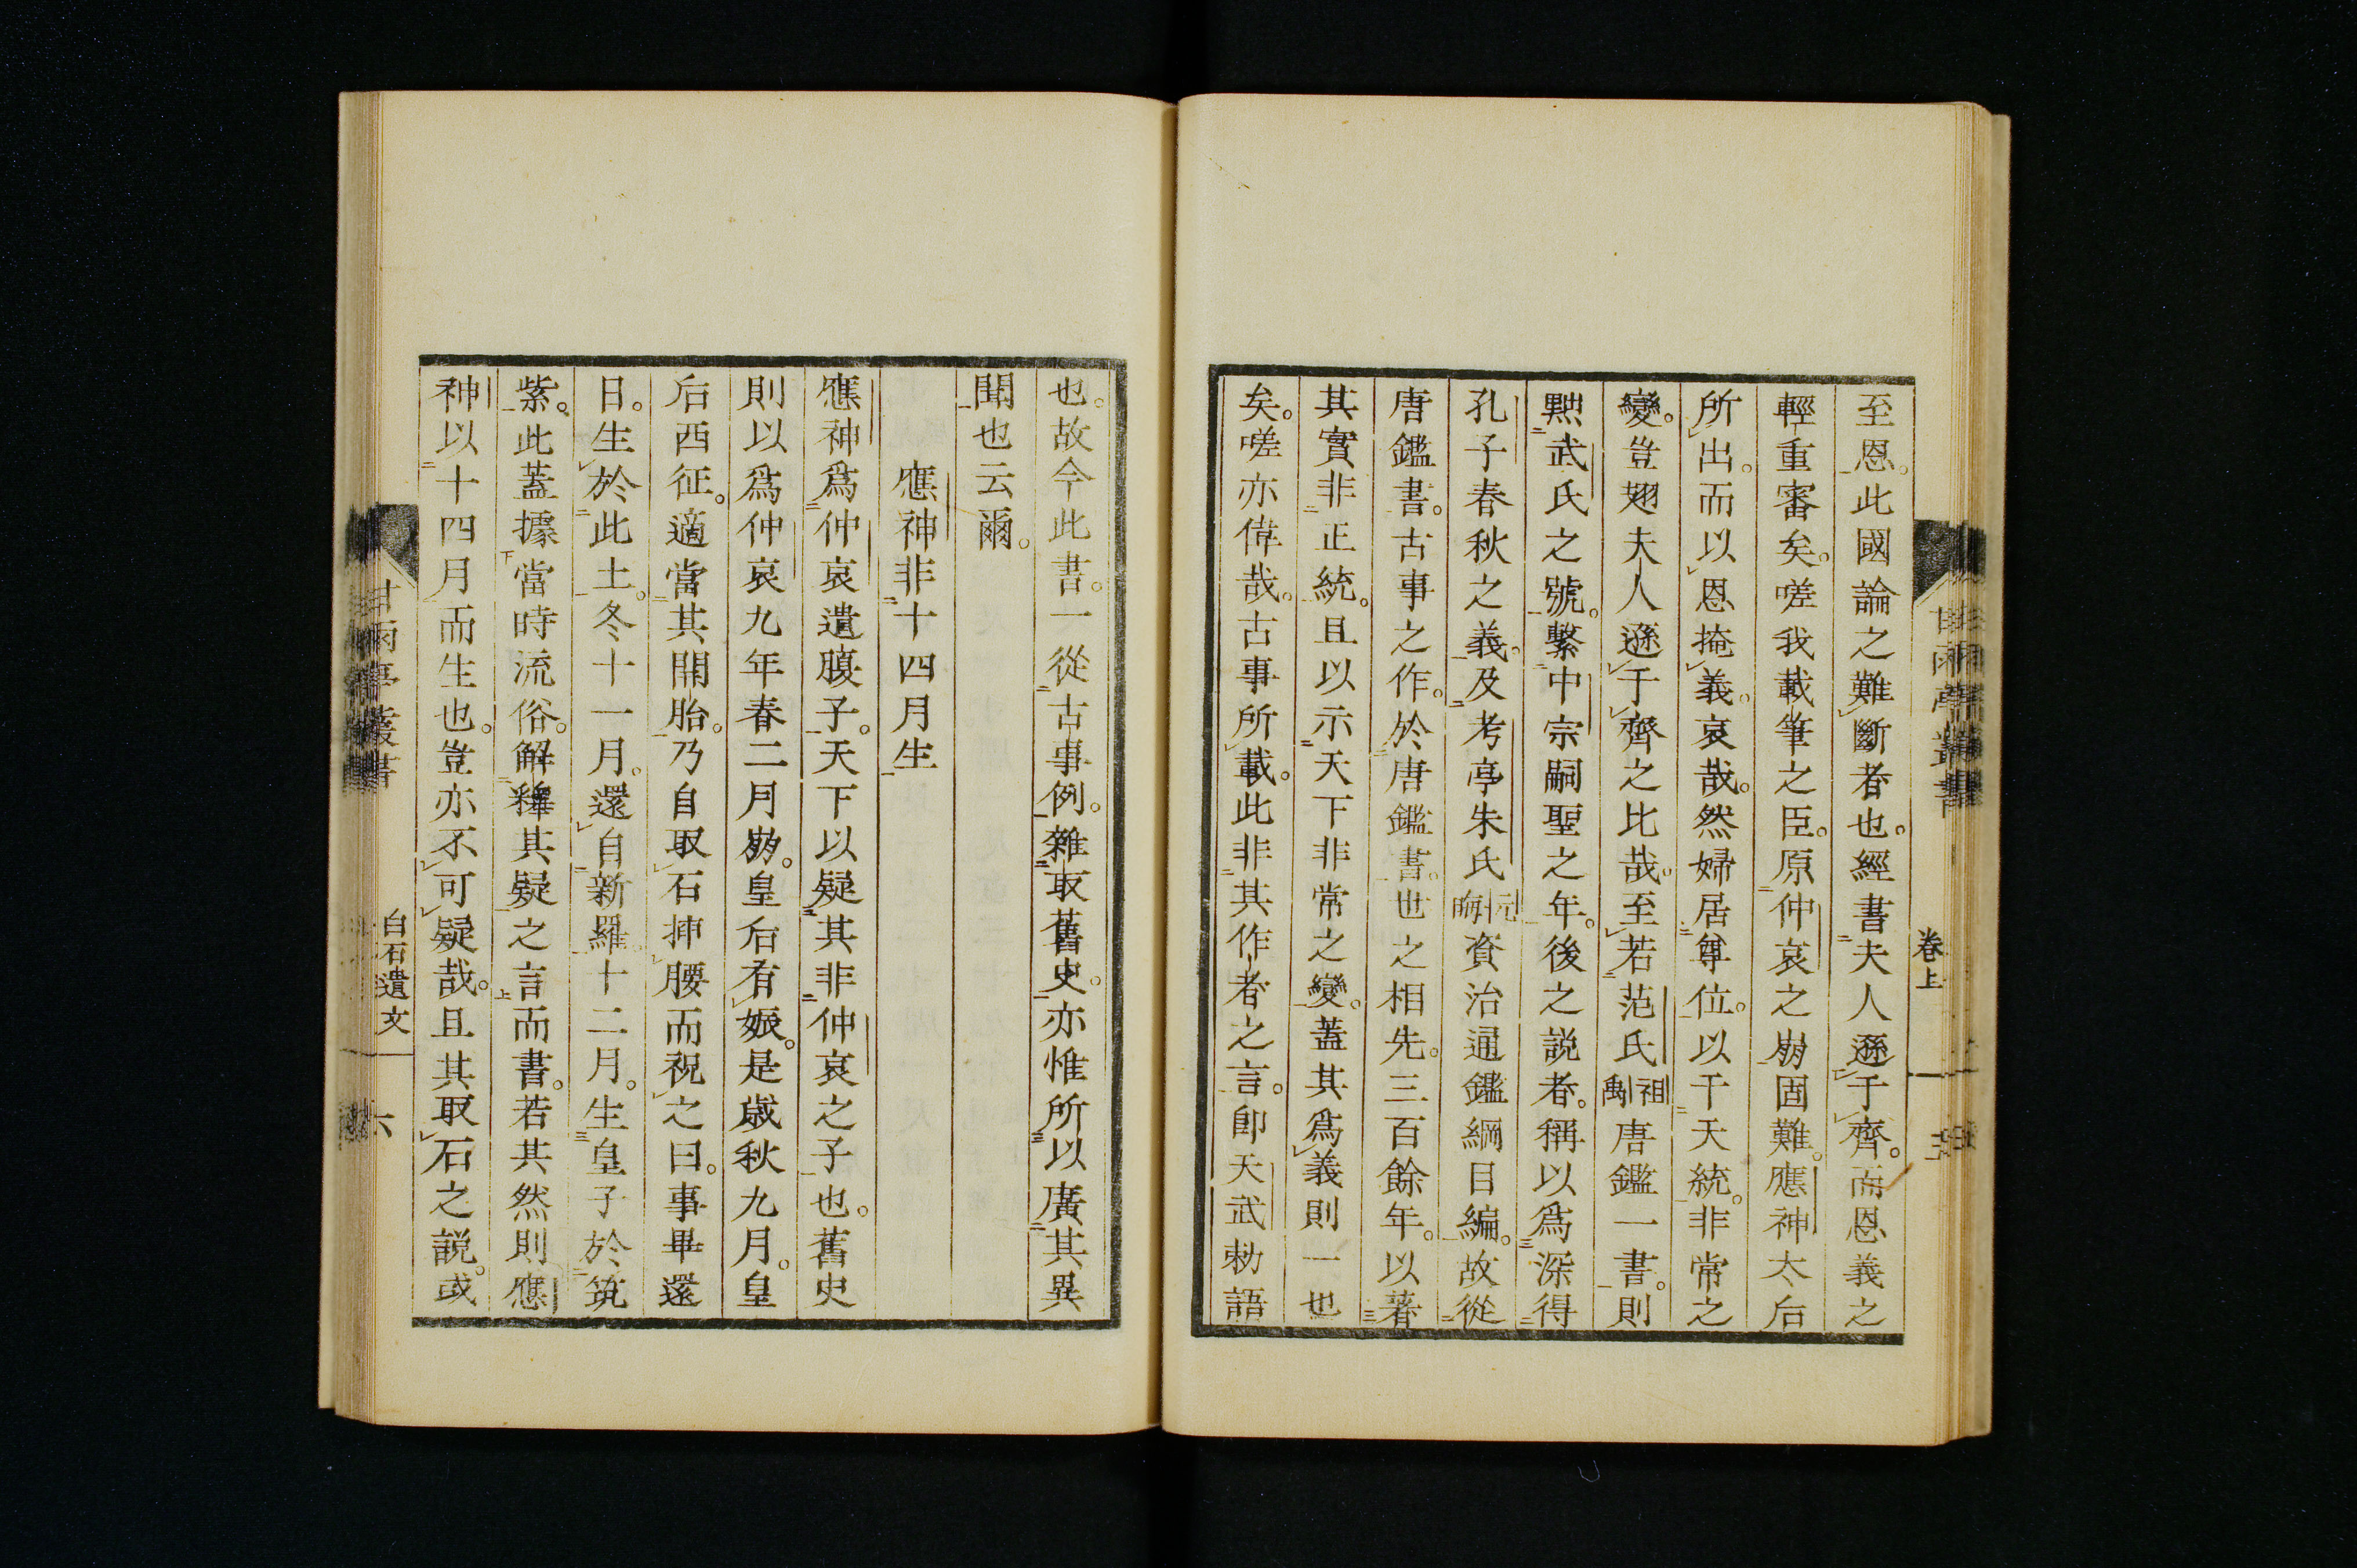 至恩。此國論之難斷者也。經書夫人遜于齊。而恩義之
輕重審矣。嗟我載筆之臣。原仲哀之崩固難。應神太后
所出。而以恩掩義。哀哉。然婦居尊位。以干天統。非常之
變。豈翅夫人遜于齊之比哉。至若范氏祖禹唐鑑一書。則
黜武氏之號。繫中宗嗣聖之年。後之説者。稱以爲深得
孔子春秋之義。及考亭朱氏元晦資治通鑑綱目編。故從
唐鑑書。古事之作。於唐鑑書。世之相先。三百餘年。以著
其實非正統。且以示天下非常之變。蓋其爲義則一也
矣。嗟亦偉哉。古事所載。此非其作者之言。卽天武勅語
甘雨亭叢書
卷上
也。故今此書。一從古事例。雜取舊史。亦惟所以廣其異
聞也云爾。
應神非十四月生
應神爲仲哀遺腹子。天下以疑其非仲哀之子也。舊史
則以爲仲哀九年春二月崩。皇后有娠。是歲秋九月。皇
后西征。適當其開胎。乃自取石挿腰而祝之曰。事畢還
日。生於此土。冬十一月。還自新羅十二月。生皇子於筑
紫。此蓋據當時流俗。解釋其疑之言而書。若其然則應
神以十四月而生也。豈亦不可疑哉。且其取石之説。或
甘雨亭叢書
白石遺文
六